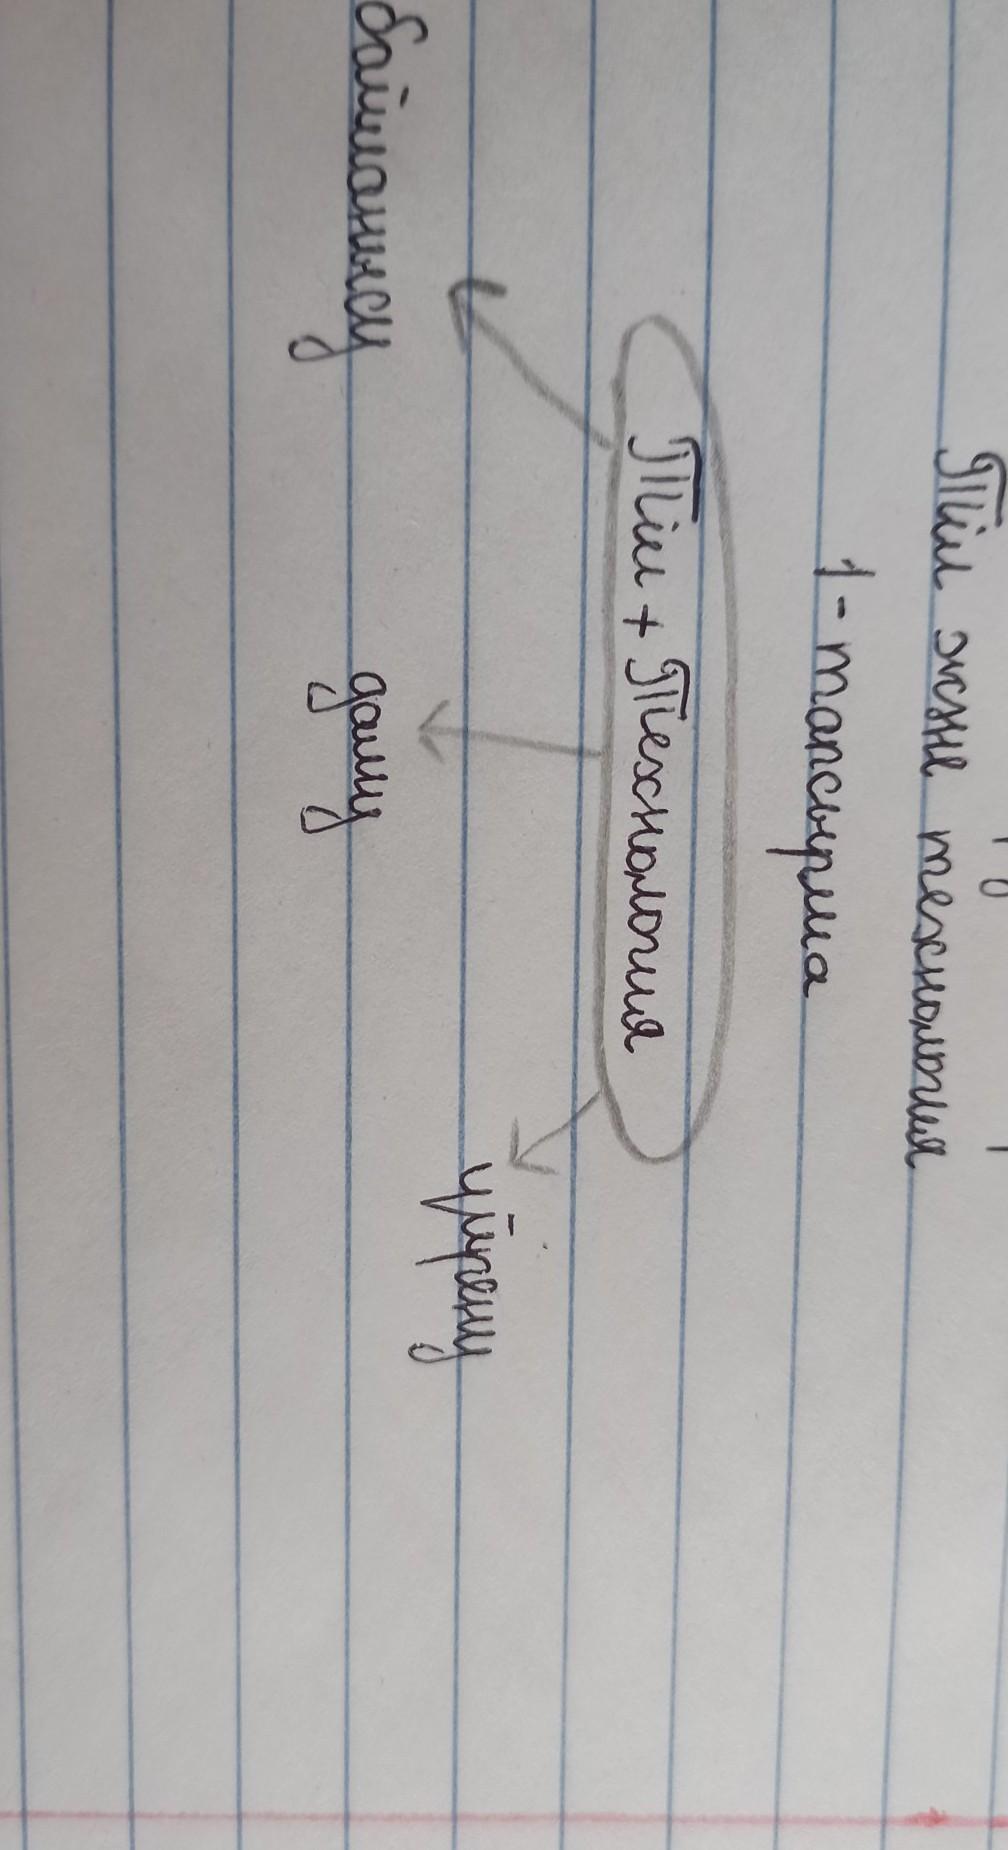 Тіл және технология
1-тапсырма
Тіл + Технология
байланысу
даму
үйрену